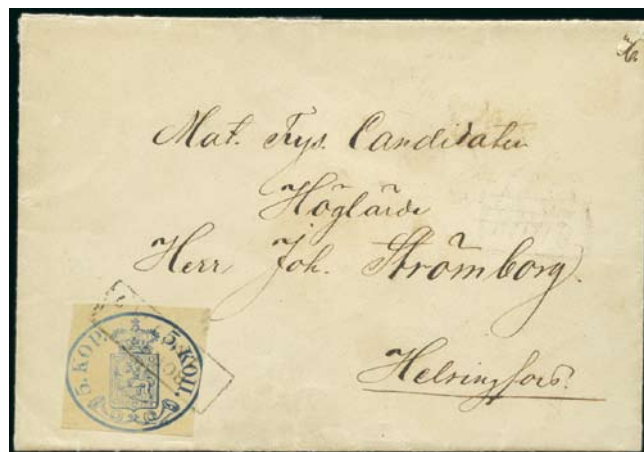 Mat. Fys. Candidaten
Höglärde
Herr Joh. Strömborg.
Helsingfors.
5. KOP. 5. КОП.